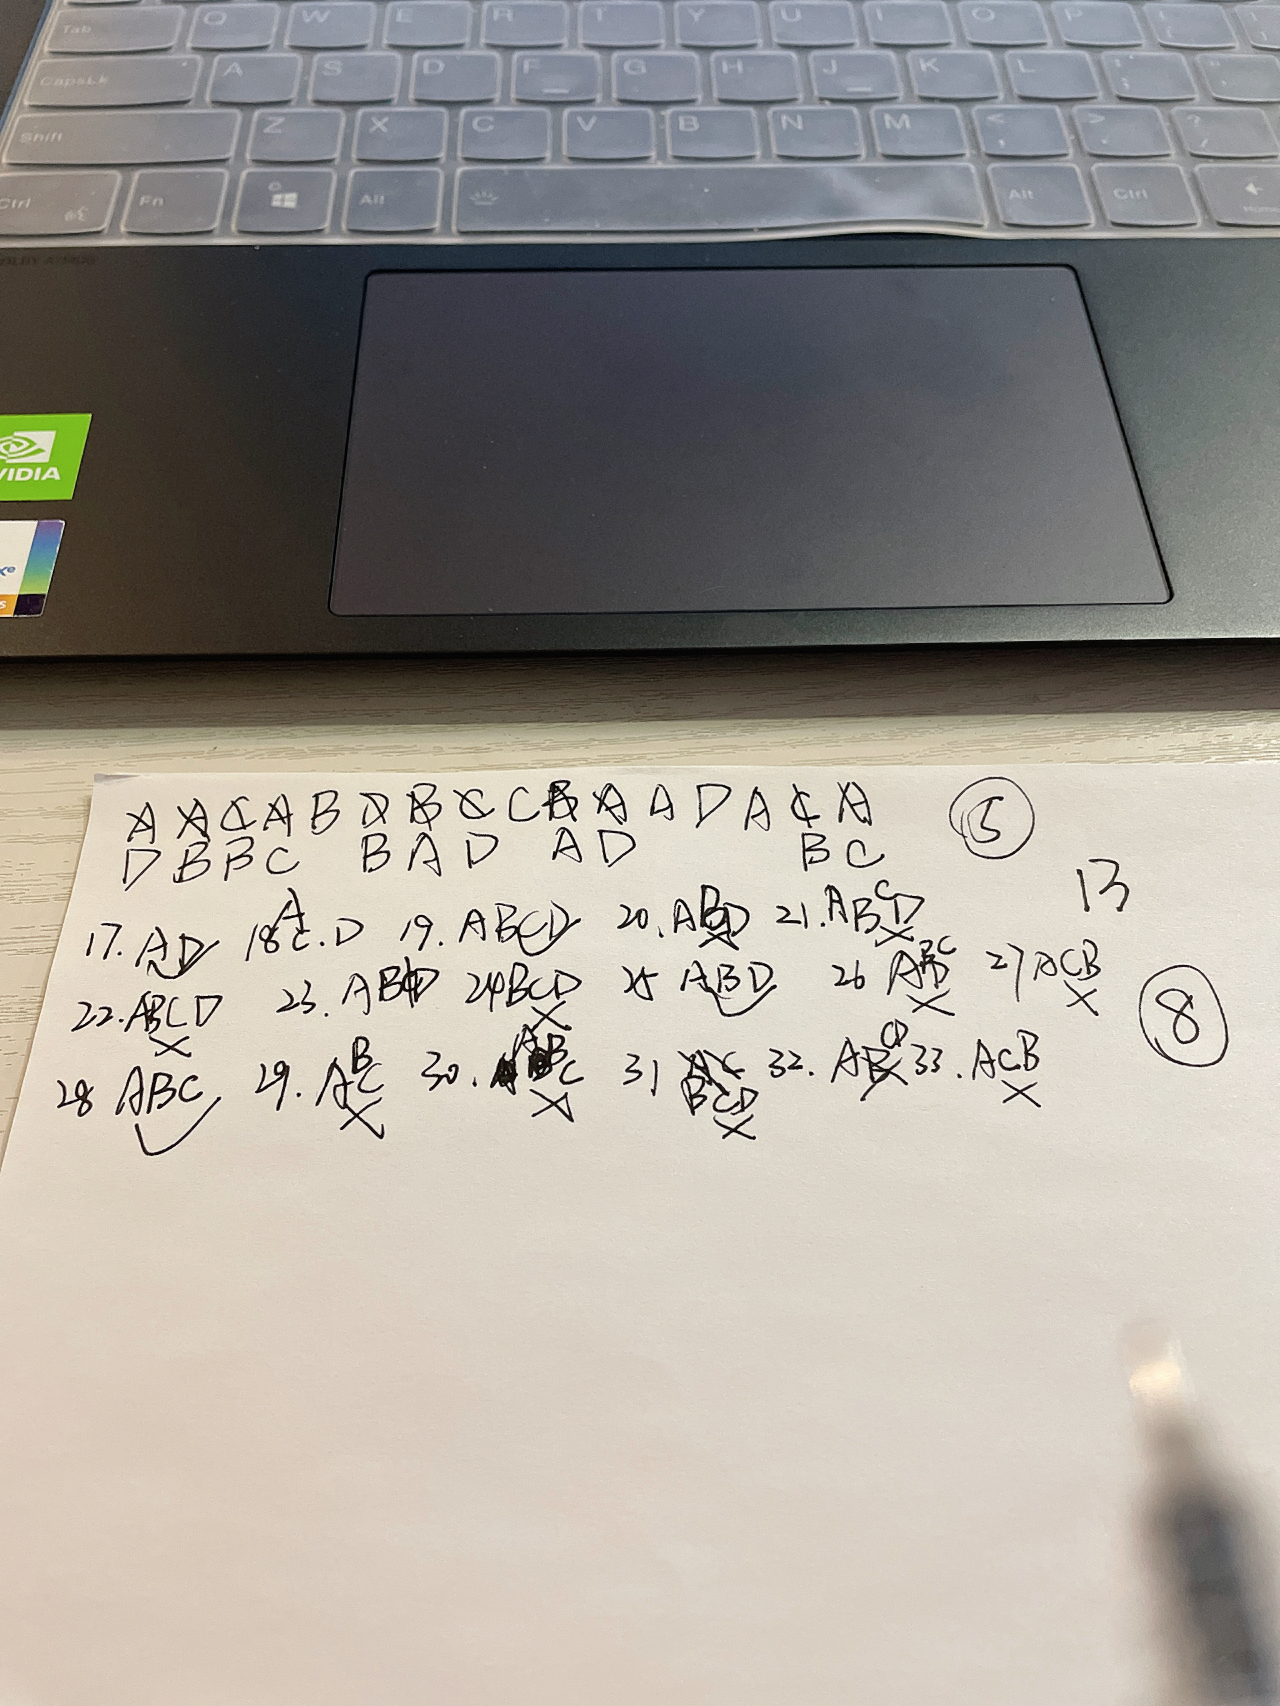 Tab Q W E R T Y U I O P
CapsLk A S D F G H J K L
Shift Z X C V B N M < > ?
Ctrl Fn Alt Alt Ctrl
VIDIA
A A C A B D B C C B A A D A C A ⑤
D B B C B A D A D B C
13
17. AD 18 A C. D 19. ABCD 20. ABD 21. ABCD
22. ABCD 23. ABCD 24 BCD 25 ABD 26 ABC 27 ACB
⑧
28 ABC 29. ABC 30. ABC 31 AC BCD 32. AB 33. ACB